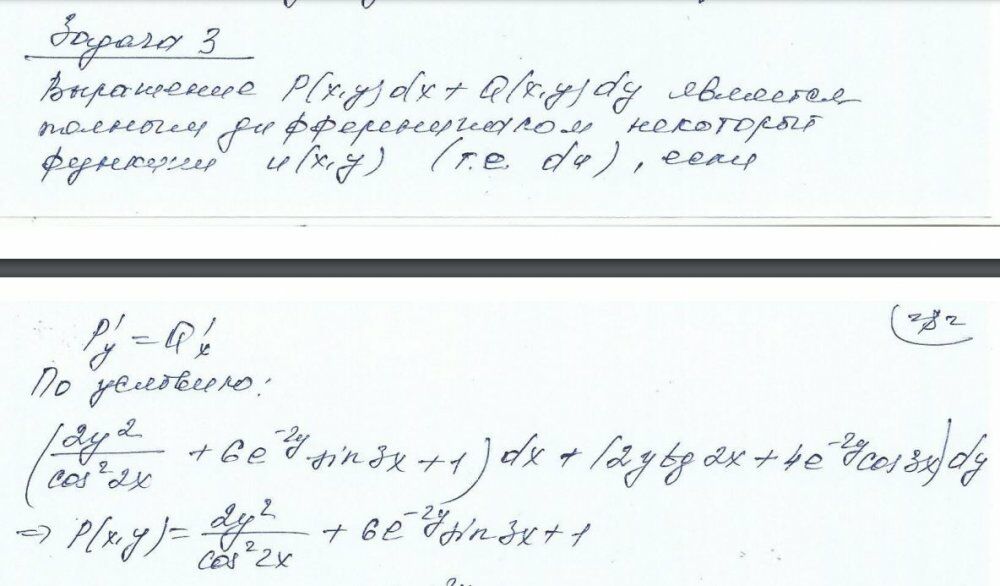 Задача 3
Выражение P(x,y)dx + Q(x,y)dy является
полным дифференциалом некоторый
функции u(x,y) (т.е. du), если
P'y = Q'x
По условию:
(2y²/cos²2x + 6e^(-2y) sin3x + 1)dx + (2y tg 2x + 4e^(-2y) cos3x)dy
⇒ P(x,y) = 2y²/cos²2x + 6e^(-2y) sin3x + 1